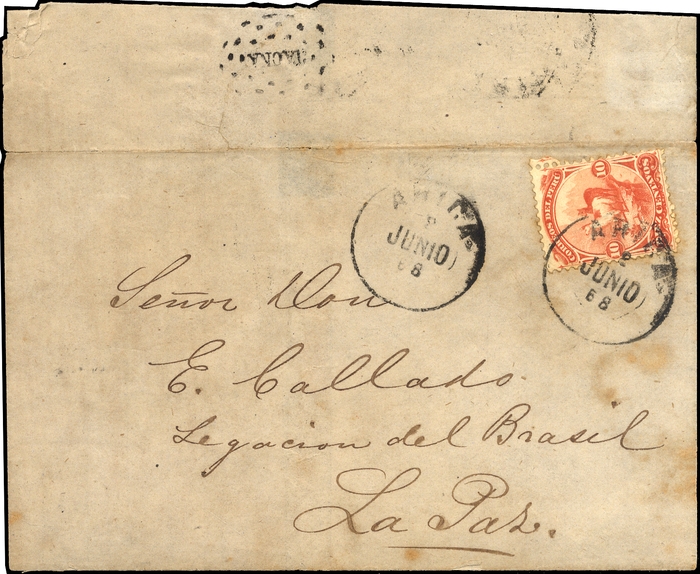 TACNA
ARICA
JUNIO
68
CORREOS DEL PERU
10
10
ARICA
JUNIO
68
Señor Don
E. Callado
Legacion del Brasil
La Paz.